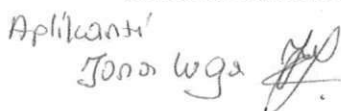 Aplikanti
Jona Luga